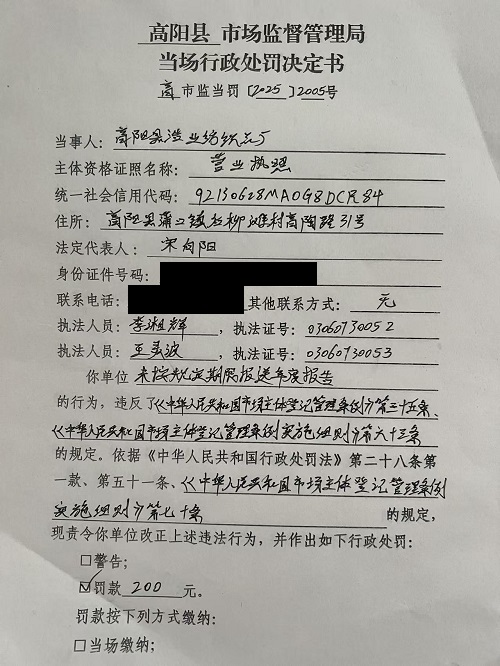 高阳县 市场监督管理局
当场行政处罚决定书
高 市监当罚〔2025〕2005号
当事人：高阳县浩业纺织品厂
主体资格证照名称：营业执照
统一社会信用代码：92130628MA0G8DCR84
住所：高阳县蒲口镇 柳滩村高陶路31号
法定代表人：宋向阳
身份证件号码：
联系电话： 其他联系方式：无
执法人员：李湘辉，执法证号：03060730052
执法人员：王美波，执法证号：03060730053
你单位 未按规定期限报送年度报告
的行为，违反了《中华人民共和国市场主体登记管理条例》第三十五条、
《中华人民共和国市场主体登记管理条例实施细则》第六十三条
的规定。依据《中华人民共和国行政处罚法》第二十八条第
一款、第五十一条、《中华人民共和国市场主体登记管理条例
实施细则》第七十条 的规定，
现责令你单位改正上述违法行为，并作出如下行政处罚：
□警告；
☑罚款 200 元。
罚款按下列方式缴纳：
□当场缴纳；